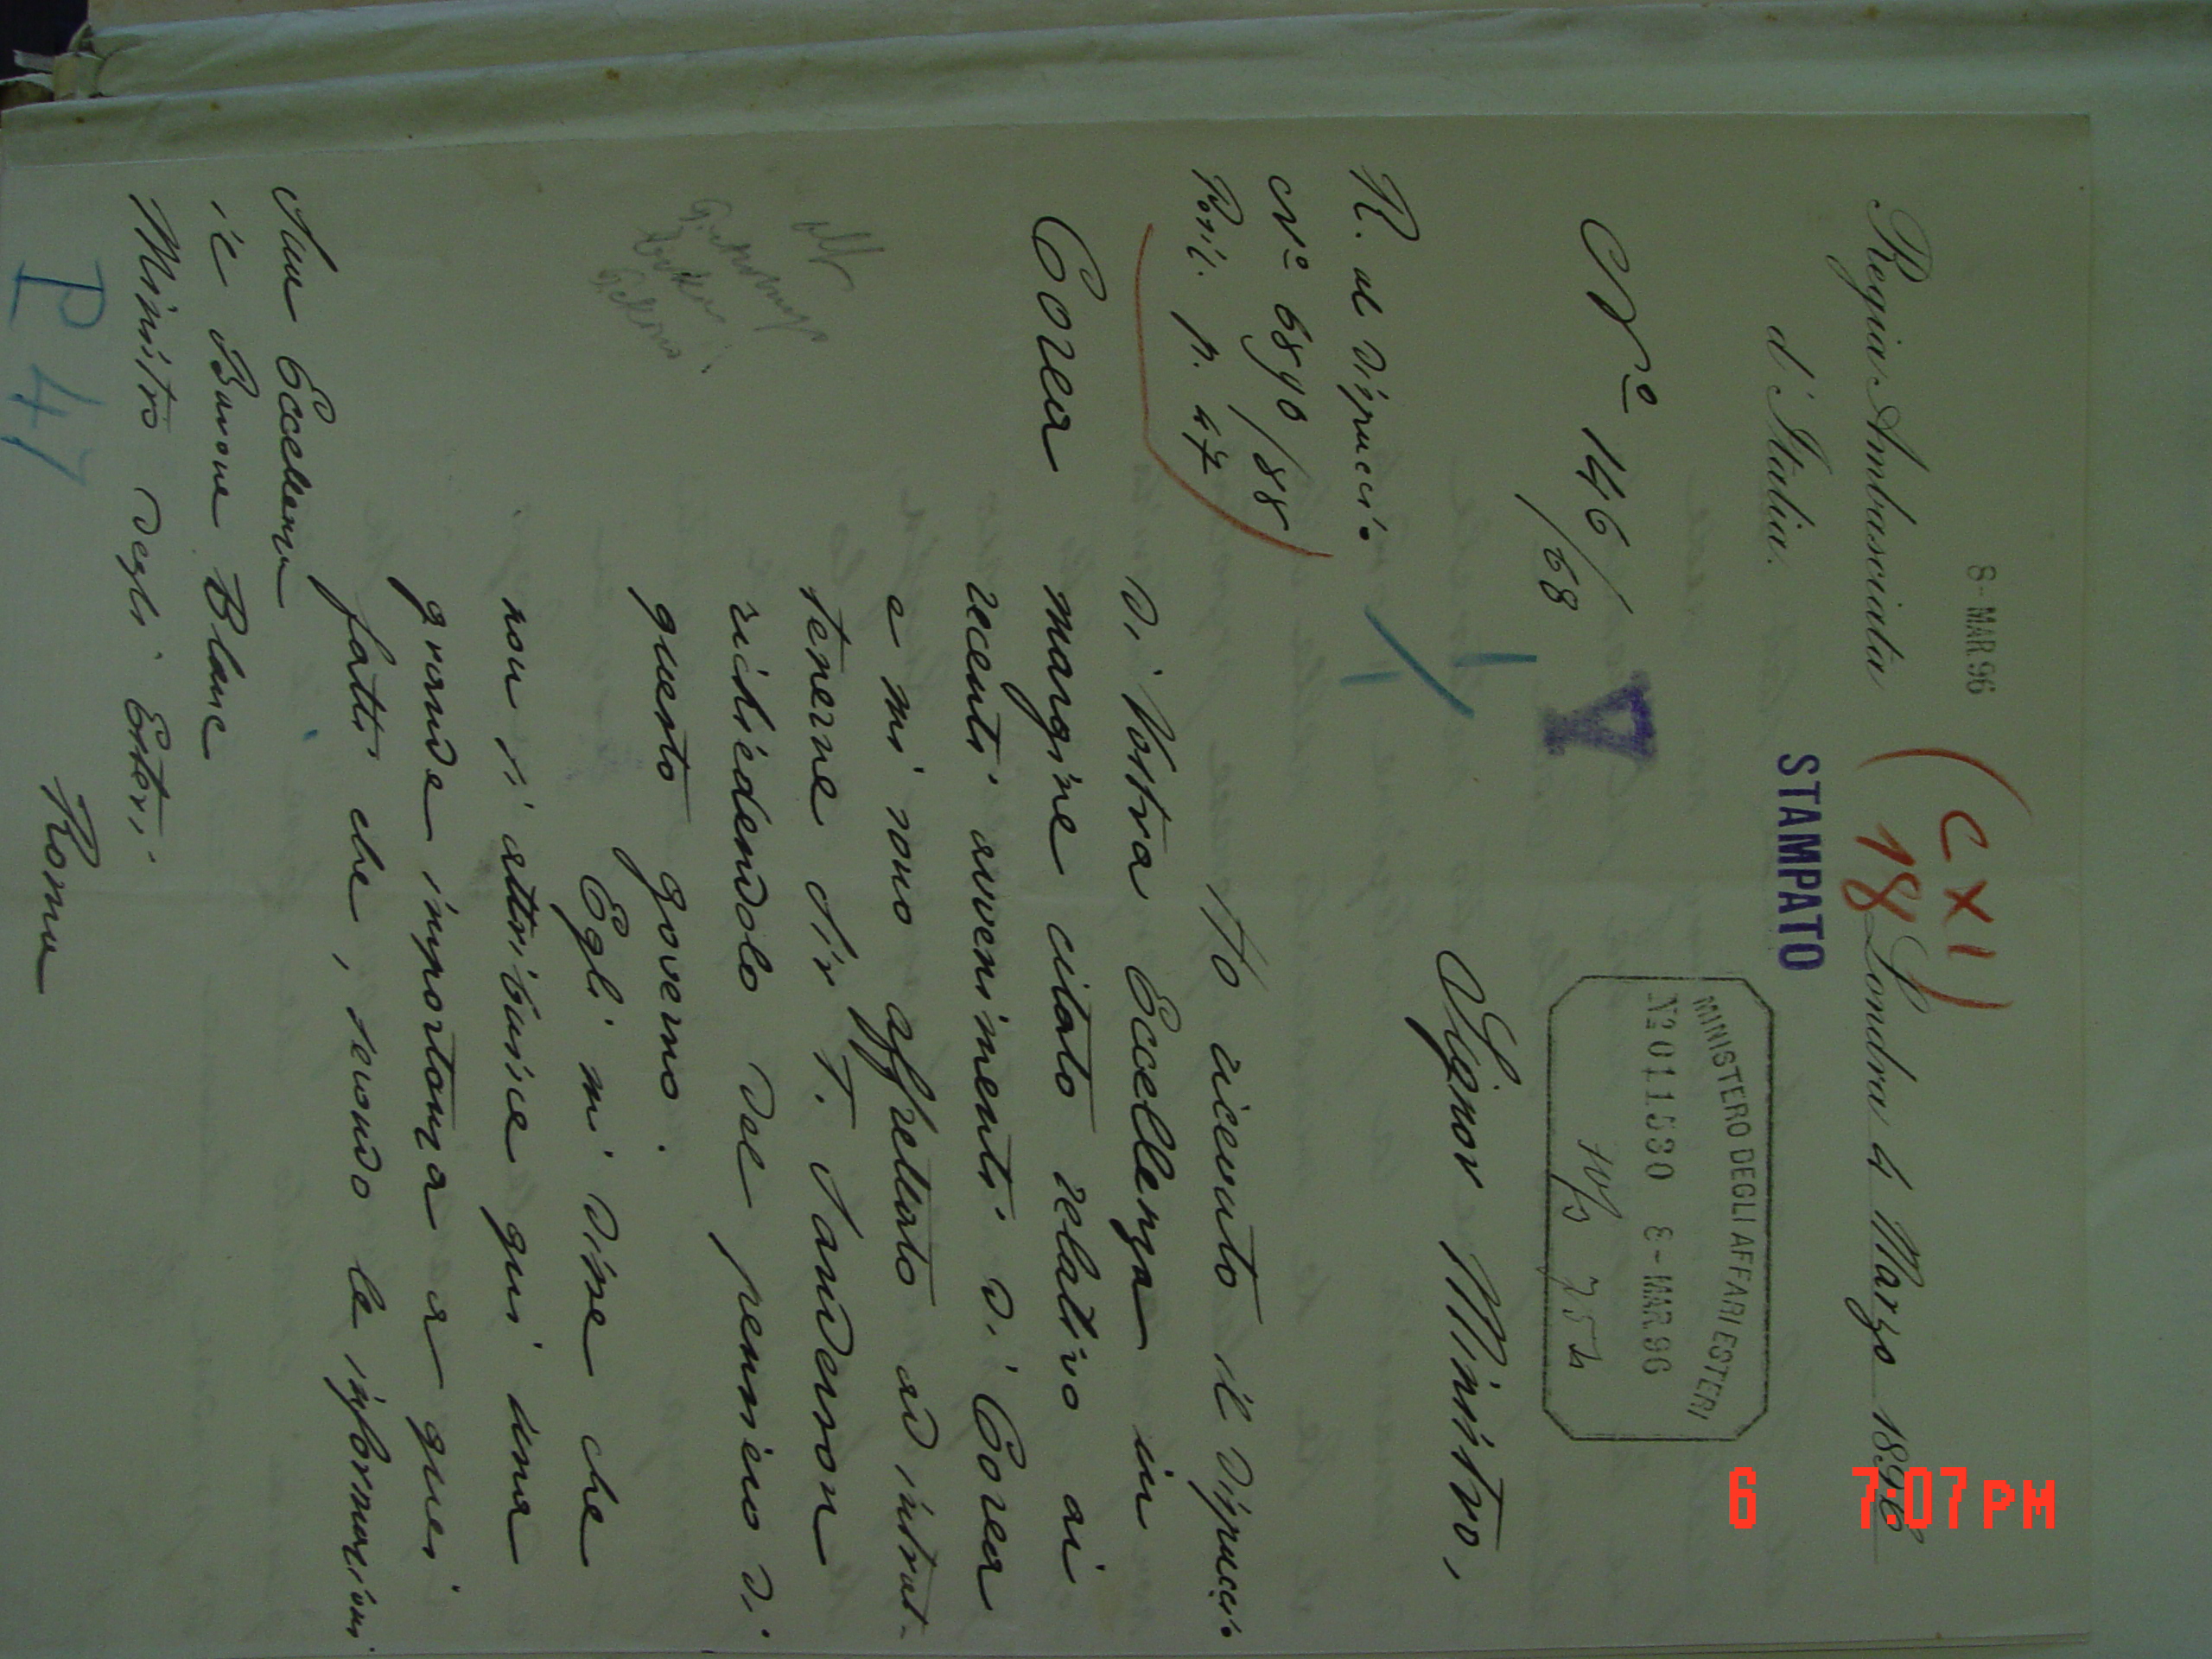 8-MAR 96
(CXI)
18
Regia Ambasciata
d'Italia.
Londra 4 Marzo 1896
STAMPATO
MINISTERO DEGLI AFFARI ESTERI
8-MAR 96
Nº 146/68
R. al dispaccio
Nº 6890/88
Posiz. p. 47
Corea
Signor Ministro,
Ho ricevuto il dispaccio
di Vostra Eccellenza in
margine citato relativo ai
recenti avvenimenti di Corea
e mi sono affrettato ad intrat-
tenerne Sir T. Sanderson
richiedendolo del pensiero di
questo governo.
Egli mi disse che
non si attribuisce qui una
grande importanza a quei
fatti che, secondo le informazioni
Sua Eccellenza
il Barone Blanc
Ministro degli Esteri
Roma
P 47
6 7:07 PM